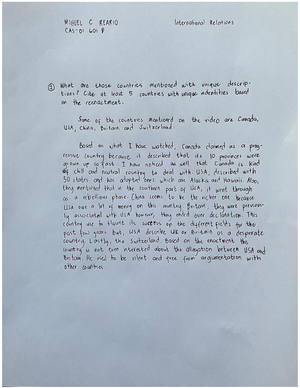 MIGUEL C. REARIO International Relations
CAS-01 601 P
① What are those countries mentioned with unique descrip-
tions? Cite at least 5 countries with unique identities based
on the reenactment.
Some of the countries mentioned on the video are Canada,
USA, China, Britain and Switzerland.
Based on what I have watched, Canada claimed as a prog-
ressive country because it described that its 10 provinces were
grown up so fast. I have noticed as well that Canada is kind
of chill and neutral country to deal with. USA, described with
50 states and has adopted ones which are Alaska and Hawaii. Also,
they mentioned that in the southern part of USA, it went through
as a rebellious phase. China seems to be the richer one because
USA owe a lot of money on this country. Britain, they were previous-
ly associated with USA however, they ended over declaration. This
country use to flaunt its success on the different fields for the
past few years but, USA describe UK or Britain as a desperate
country. Lastly, the Switzerland. Based on the enactment this
country is not even interested about the altercation between USA and
Britain. He tried to be silent and free from argumentation with
other countries.